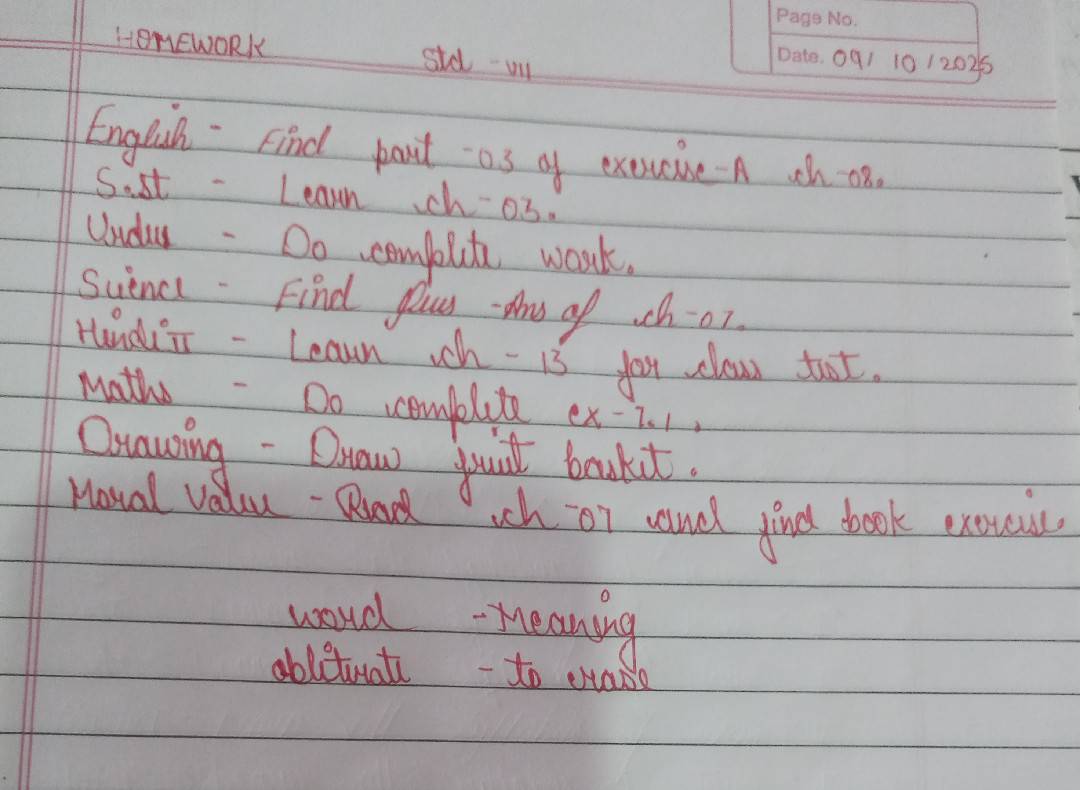 Page No.
HOMEWORK Std - VII Date. 09/ 10 / 2025
English - Find part - 03 of exercise - A ch - 08.
S.st - Learn ch - 03.
Urdu - Do complete work.
Science - Find Ques - Ans of ch - 07.
Hindi II - Learn ch - 13 for class test.
Maths - Do complete ex - 7.1.
Drawing - Draw fruit basket.
Moral Value - Read ch - 07 and find book exercise.
word - Meaning
obliterate - to erase